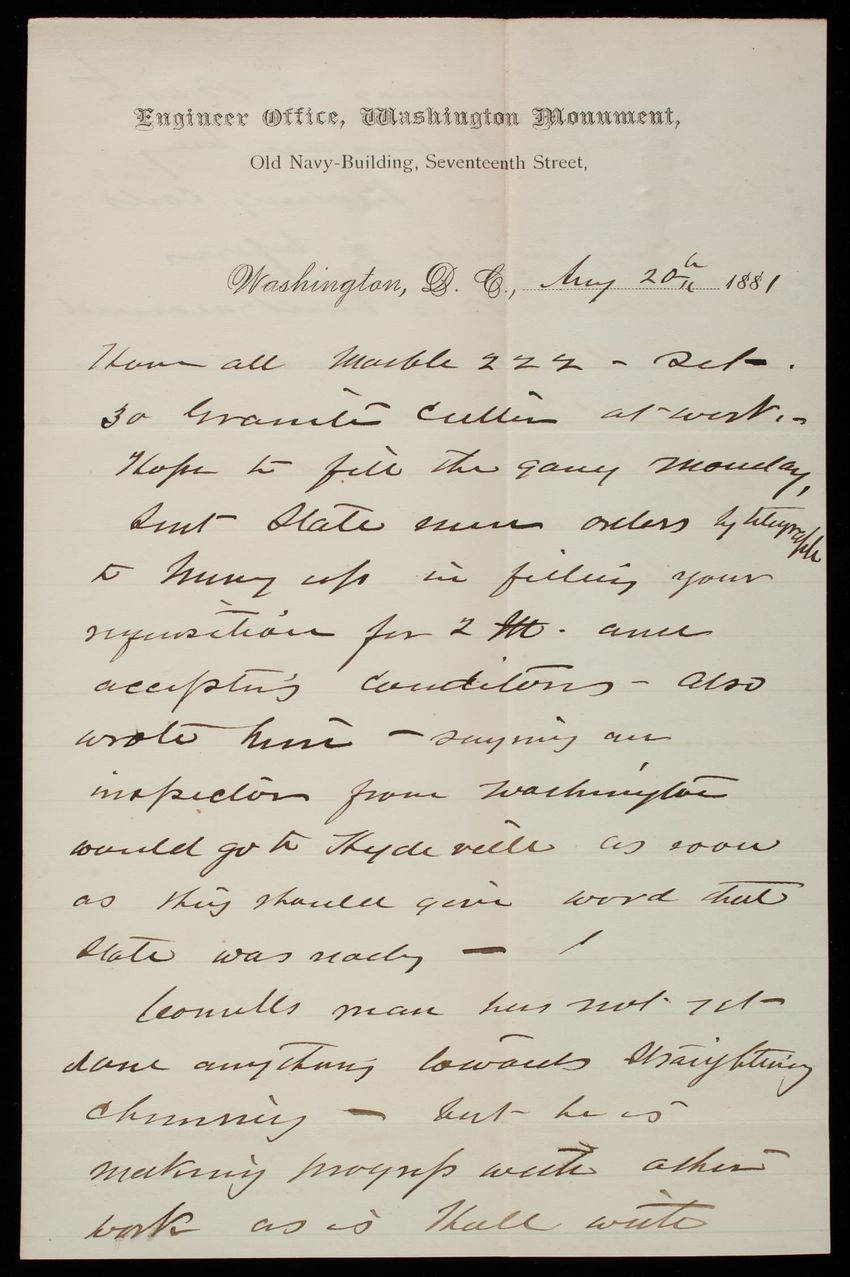 Engineer Office, Washington Monument,
Old Navy-Building, Seventeenth Street,
Washington, D. C., Aug 20th 1881
Have all Marble 222 - set.
30 Granite Cutters at work. -
Hope to fill the gang Monday,
Sent Slate men orders by telegraph
to hurry up in filling your
requisition for 2 M. and
accepting conditions - also
wrote him - saying an
inspector from Washington
would go to Hydeville as soon
as they should give word that
Slate was ready -
man has not yet
done anything towards Straightening
chimney - but he is
making progress with other
work as is Hall with